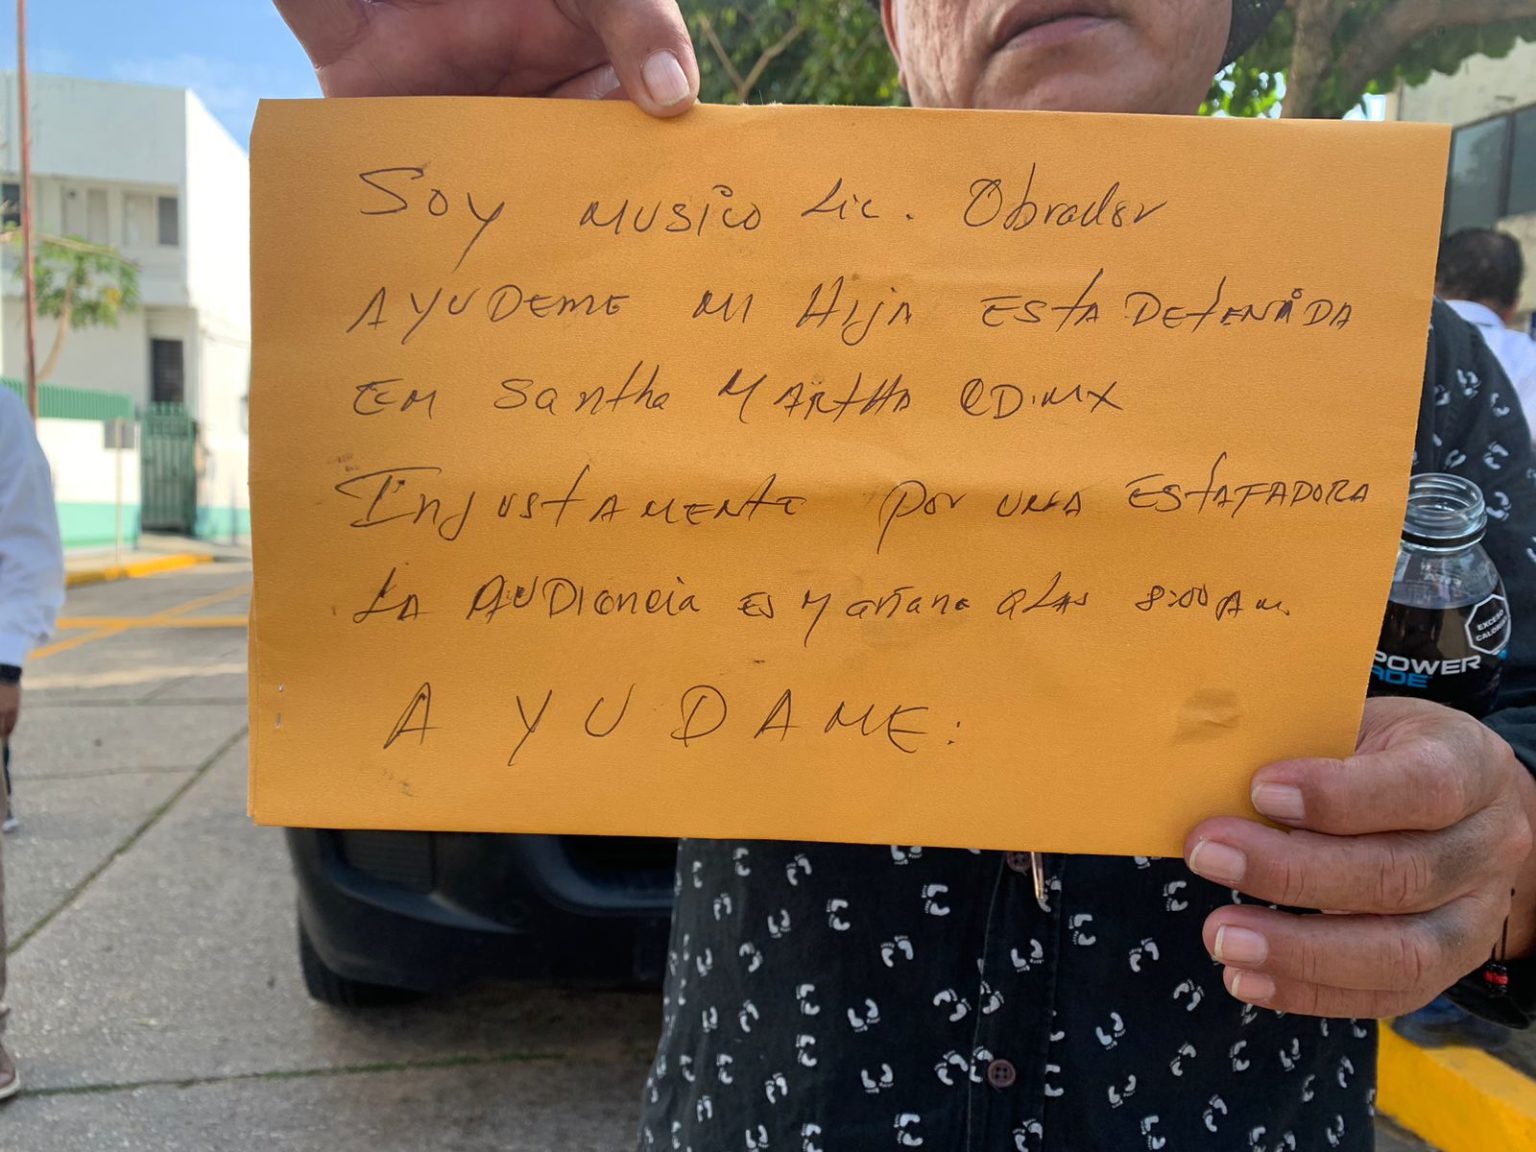 Soy musico Lic. Obrador
AYUDEME MI HIJA ESTA DETENIDA
EM Santha MARTHA CD.MX
INJUSTAMENTE por UNA ESTAFADORA
LA AUDIENCIA ES MAÑANA A LAS 8:00 AM.
AYUDAME:
EXCESO
CALORÍAS
POWER
ADE